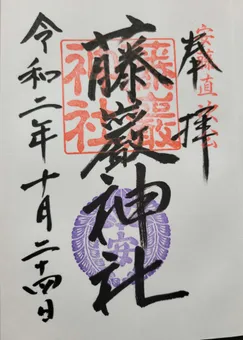 奉拝
藤巖神社
令和二年十月二十四日
藤巖
神社